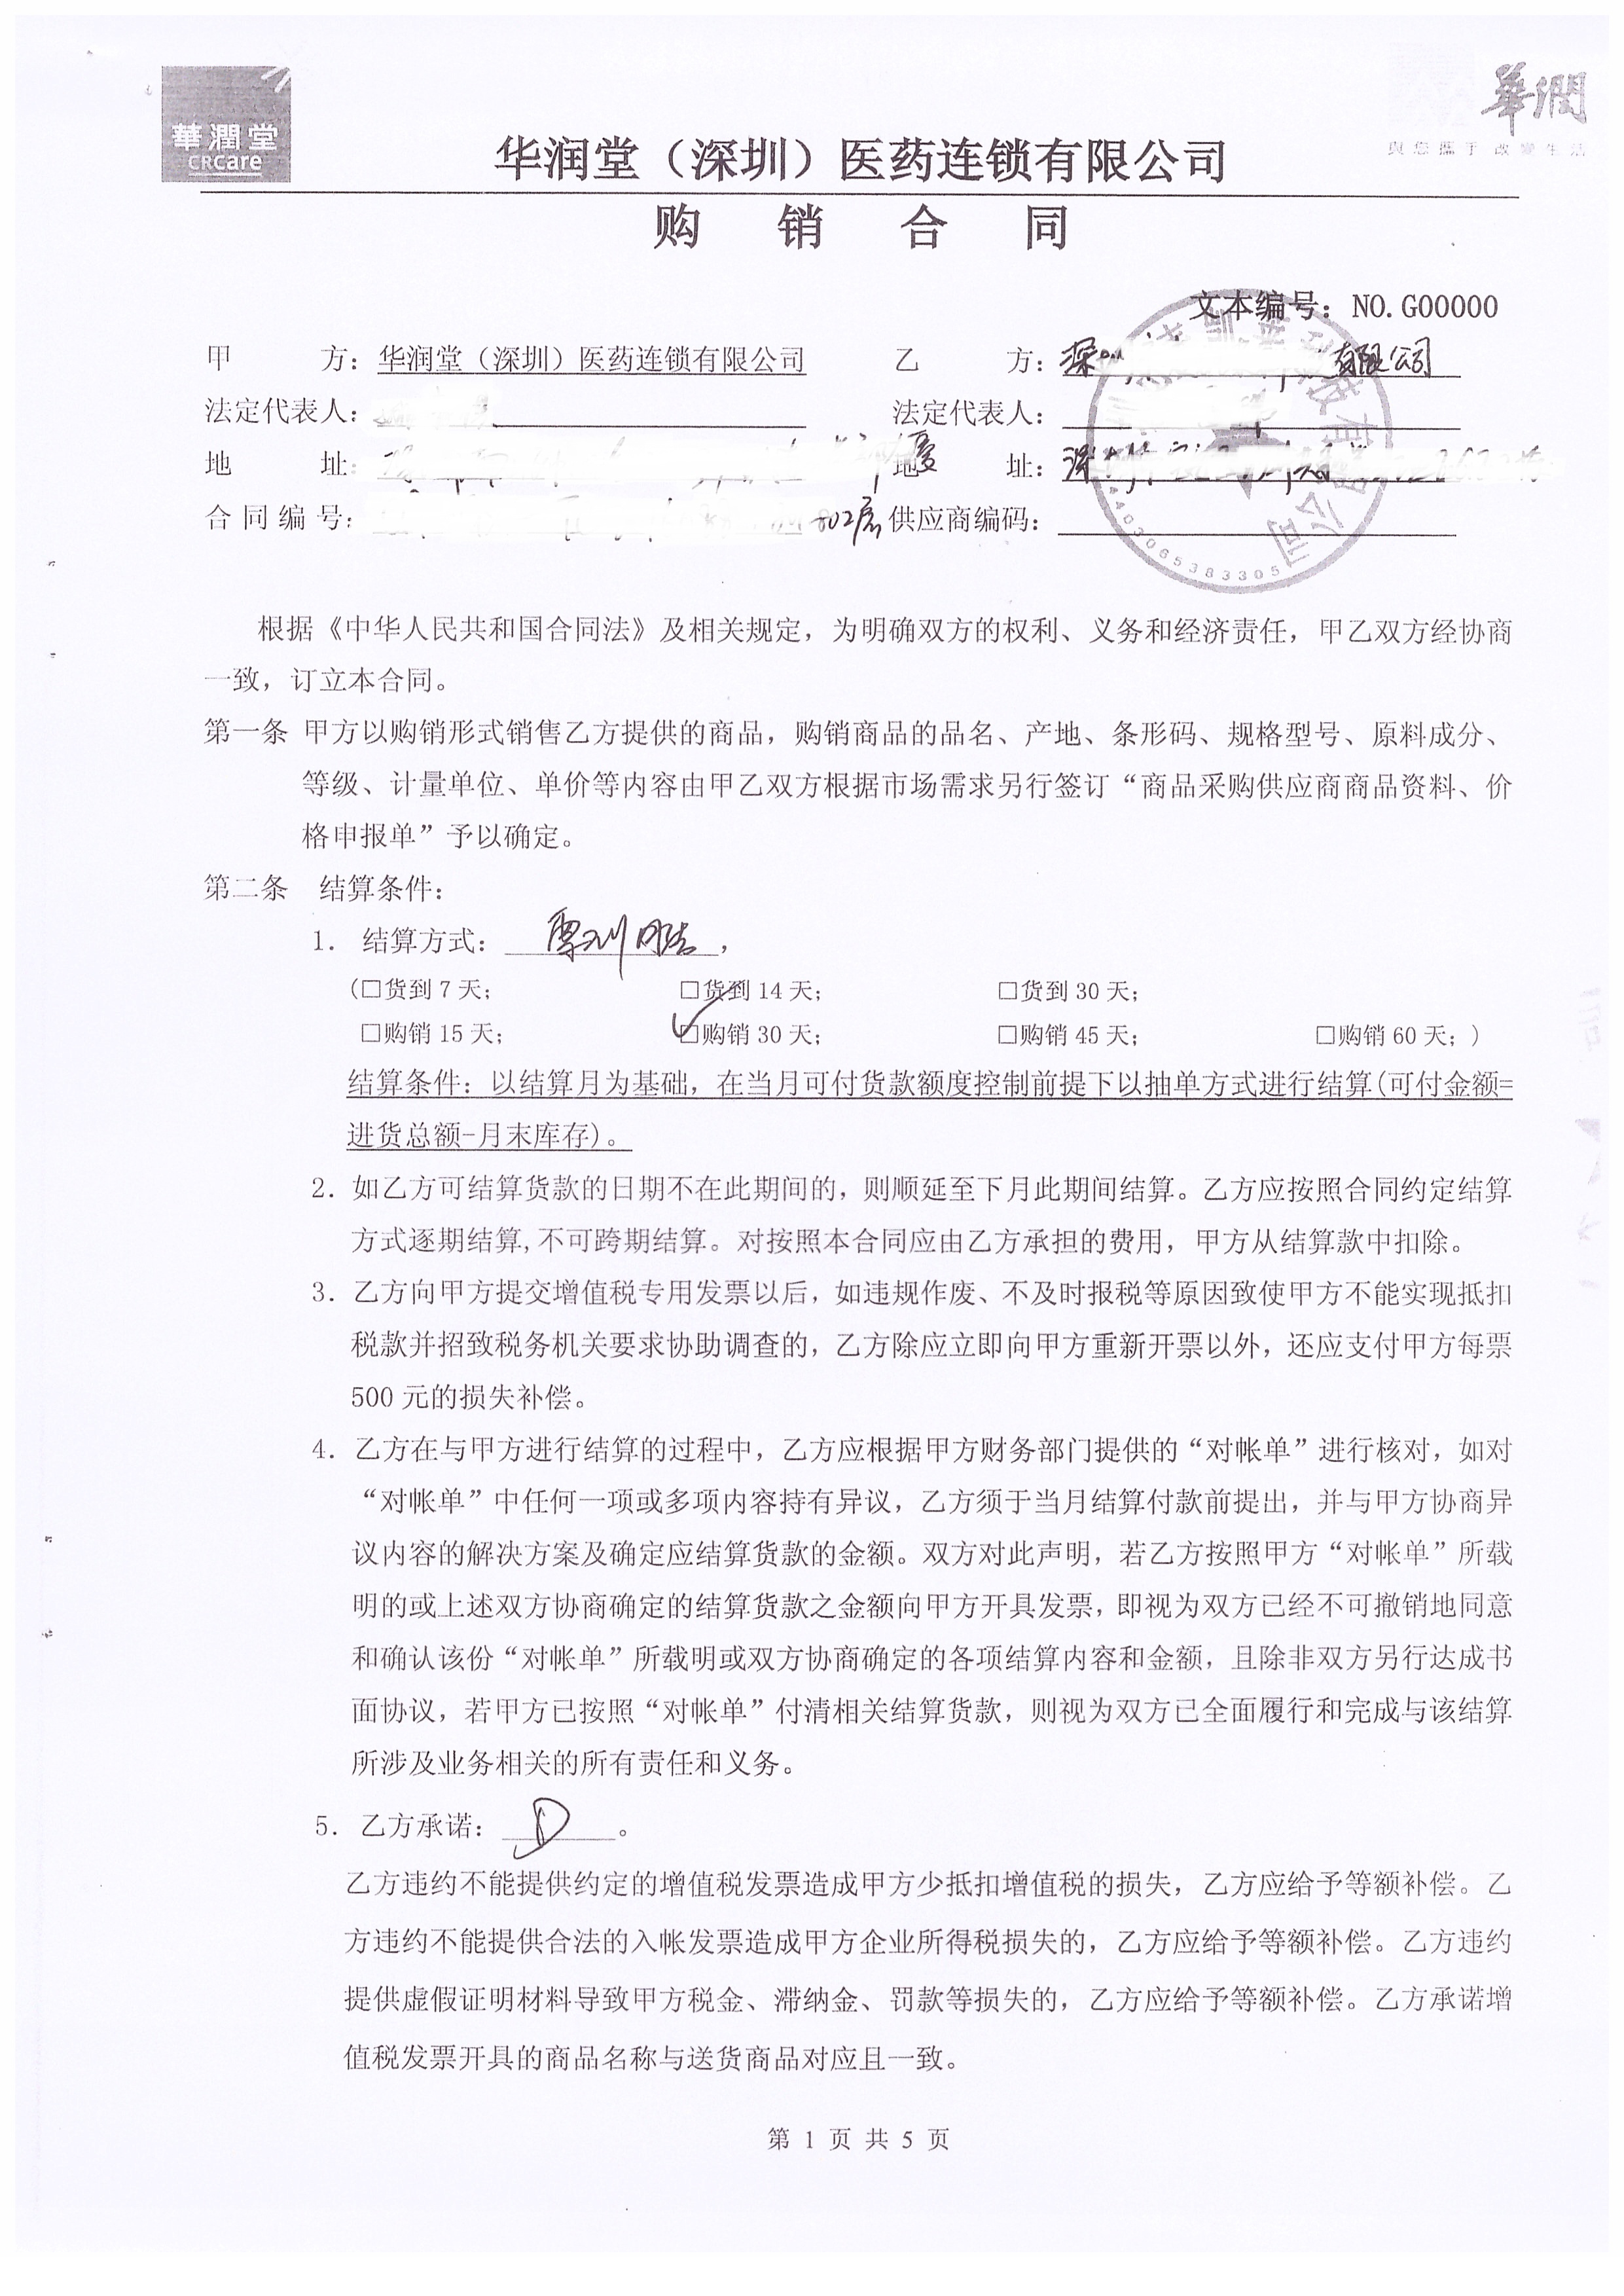 華潤堂
CRCare
華潤
與您攜手 改變生活
华润堂（深圳）医药连锁有限公司
购 销 合 同
文本编号：NO.G00000
甲 方：华润堂（深圳）医药连锁有限公司 乙 方：深 有限公司
法定代表人： 法定代表人：
地 址： 地 址：深
合同编号： 802房 供应商编码：
4403065383305
根据《中华人民共和国合同法》及相关规定，为明确双方的权利、义务和经济责任，甲乙双方经协商
一致，订立本合同。
第一条 甲方以购销形式销售乙方提供的商品，购销商品的品名、产地、条形码、规格型号、原料成分、
等级、计量单位、单价等内容由甲乙双方根据市场需求另行签订“商品采购供应商商品资料、价
格申报单”予以确定。
第二条 结算条件：
1. 结算方式：票到月结，
(□货到 7 天； □货到 14 天； □货到 30 天；
□购销 15 天； ☑购销 30 天； □购销 45 天； □购销 60 天；)
结算条件：以结算月为基础，在当月可付货款额度控制前提下以抽单方式进行结算(可付金额=
进货总额-月末库存)。
2. 如乙方可结算货款的日期不在此期间的，则顺延至下月此期间结算。乙方应按照合同约定结算
方式逐期结算,不可跨期结算。对按照本合同应由乙方承担的费用，甲方从结算款中扣除。
3. 乙方向甲方提交增值税专用发票以后，如违规作废、不及时报税等原因致使甲方不能实现抵扣
税款并招致税务机关要求协助调查的，乙方除应立即向甲方重新开票以外，还应支付甲方每票
500 元的损失补偿。
4. 乙方在与甲方进行结算的过程中，乙方应根据甲方财务部门提供的“对帐单”进行核对，如对
“对帐单”中任何一项或多项内容持有异议，乙方须于当月结算付款前提出，并与甲方协商异
议内容的解决方案及确定应结算货款的金额。双方对此声明，若乙方按照甲方“对帐单”所载
明的或上述双方协商确定的结算货款之金额向甲方开具发票，即视为双方已经不可撤销地同意
和确认该份“对帐单”所载明或双方协商确定的各项结算内容和金额，且除非双方另行达成书
面协议，若甲方已按照“对帐单”付清相关结算货款，则视为双方已全面履行和完成与该结算
所涉及业务相关的所有责任和义务。
5. 乙方承诺： 。
乙方违约不能提供约定的增值税发票造成甲方少抵扣增值税的损失，乙方应给予等额补偿。乙
方违约不能提供合法的入帐发票造成甲方企业所得税损失的，乙方应给予等额补偿。乙方违约
提供虚假证明材料导致甲方税金、滞纳金、罚款等损失的，乙方应给予等额补偿。乙方承诺增
值税发票开具的商品名称与送货商品对应且一致。
第 1 页 共 5 页